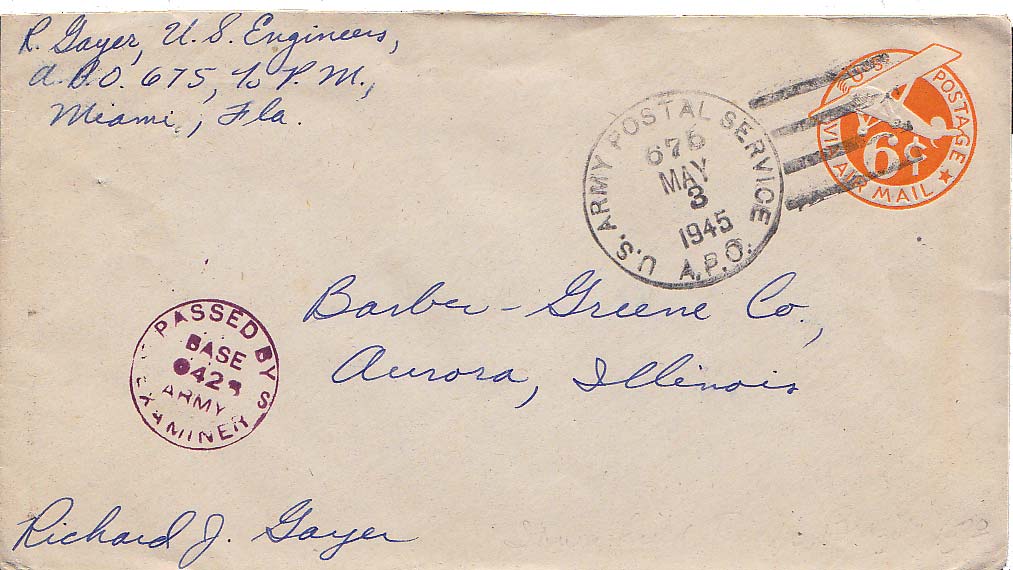 R. Gayer, U. S. Engineers,
A.P.O. 675, % P. M.,
Miami, Fla.
U.S. ARMY POSTAL SERVICE
675
MAY
3
1945
A.P.O.
U.S. POSTAGE
6¢
VIA AIR MAIL
Barber-Greene Co.,
Aurora, Illinois
PASSED BY
BASE
ARMY
EXAMINER
Richard J. Gayer